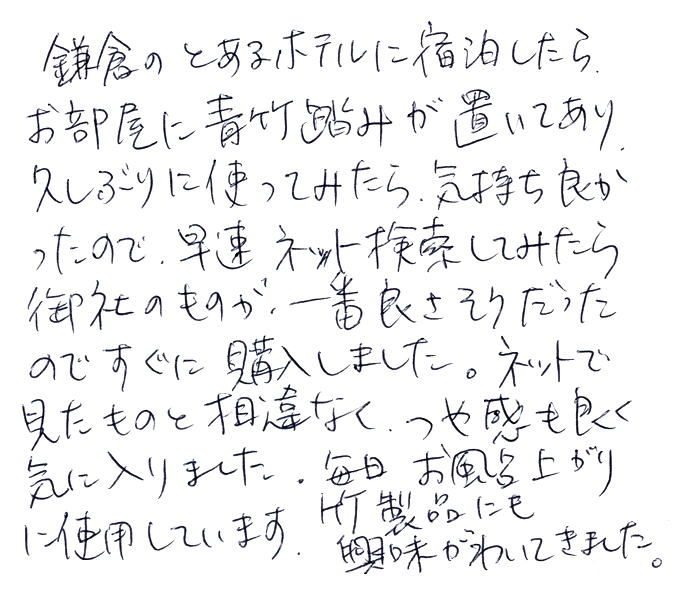 鎌倉のとあるホテルに宿泊したら、
お部屋に青竹踏みが置いてあり、
久しぶりに使ってみたら、気持ち良か
ったので、早速ネット検索してみたら
御社のものが、一番良さそうだった
のですぐに購入しました。ネットで
見たものと相違なく、つや感も良く
気に入りました。毎日お風呂上がり
に使用しています。竹製品にも
興味がわいてきました。